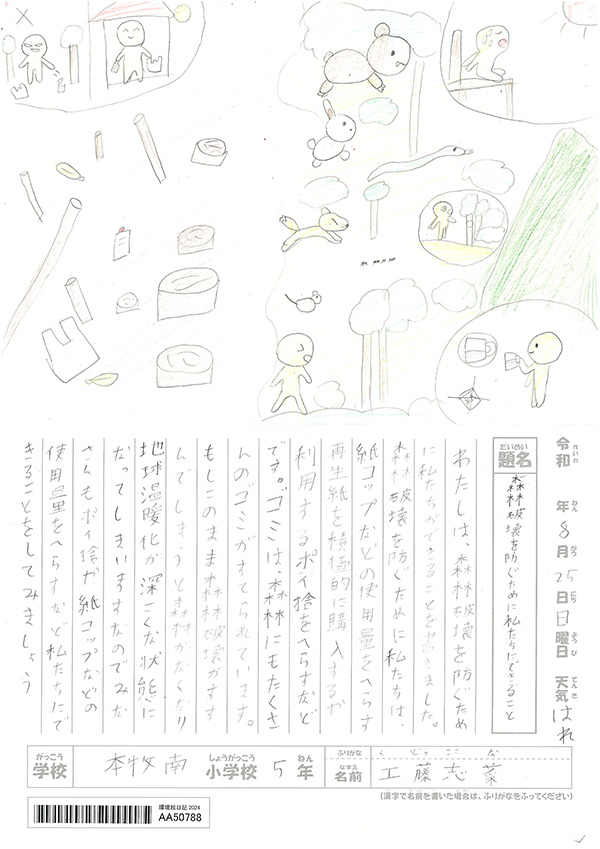 令和 年 8月 25日 日曜日 天気 はれ
れいわ ねん がつ にち ようび てんき
だいめい
題名
森林破壊を防ぐために私たちにできること
わたしは、森林破壊を防ぐため
に私たちができることを書きました。
森林破壊を防ぐために私たちは、
紙コップなどの使用量をへらす
再生紙を積極的に購入するか
利用するポイ捨をへらすなど
です。ゴミは、森林にもたくさ
んのゴミがすてられています。
もしこのまま森林破壊がすす
んでしまうと森林がなくなり
地球温暖化が深こくな状態に
なってしまいますなのでみな
さんもポイ捨や紙コップなどの
使用量をへらすなど私たちにで
きることをしてみましょう
がっこう
学校
本牧南
しょうがっこう
小学校
5
ねん
年
ふりがな
くどう ここな
なまえ
名前
工藤志菜
(漢字で名前を書いた場合は、ふりがなをふってください)
環境絵日記 2024
AA50788